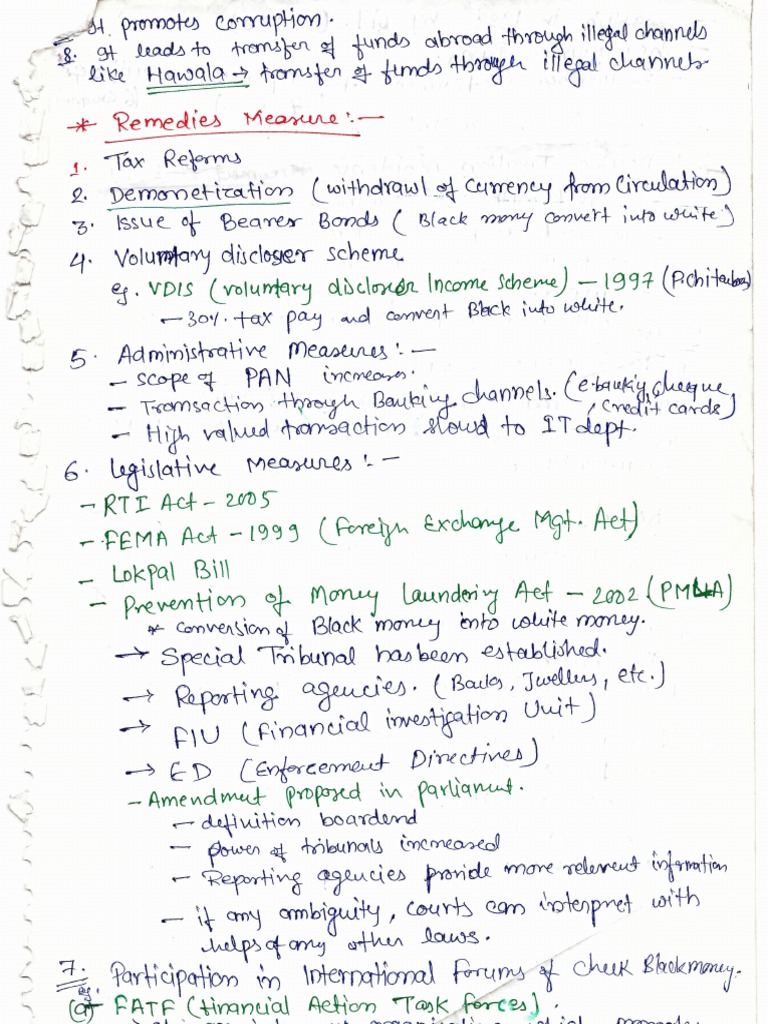 It promotes corruption.
8. It leads to transfer of funds abroad through illegal channels
like Hawala → transfer of funds through illegal channels
* Remedies Measure:-
1. Tax Reforms
2. Demonetization (withdrawl of currency from Circulation)
3. Issue of Bearer Bonds (Black mony convert into white)
4. Voluntary discloser scheme
eg. VDIS (voluntary discloser Income Scheme) - 1997 (P.Chitambar)
- 30% tax pay and convert Black into white.
5. Administrative Measures:-
- scope of PAN increases.
- Transaction through Banking channels. (e-banking, cheque
, credit cards)
- High valued transaction slowd to IT dept.
6. legislative Measures:-
- RTI Act - 2005
- FEMA Act - 1999 (Foreign Exchange Mgt. Act)
- Lokpal Bill
- Prevention of Money Laundering Act - 2002 (PMLA)
* conversion of Black money into white money.
→ Special Tribunal has been established.
→ Reporting agencies. (Banks, Jwellers, etc.)
→ FIU (Financial investigation Unit)
→ ED (Enforcement Directives)
- Amendmut proposed in parliamut.
- definition boardend
- power of tribunals increased
- Reporting agencies provide more relevent information
- if any ambiguity, courts can interpret with
helps of any other laws.
7. Participation in International Forums of check Blackmoney.
eg.
(a) FATF (financial Action Task forces).